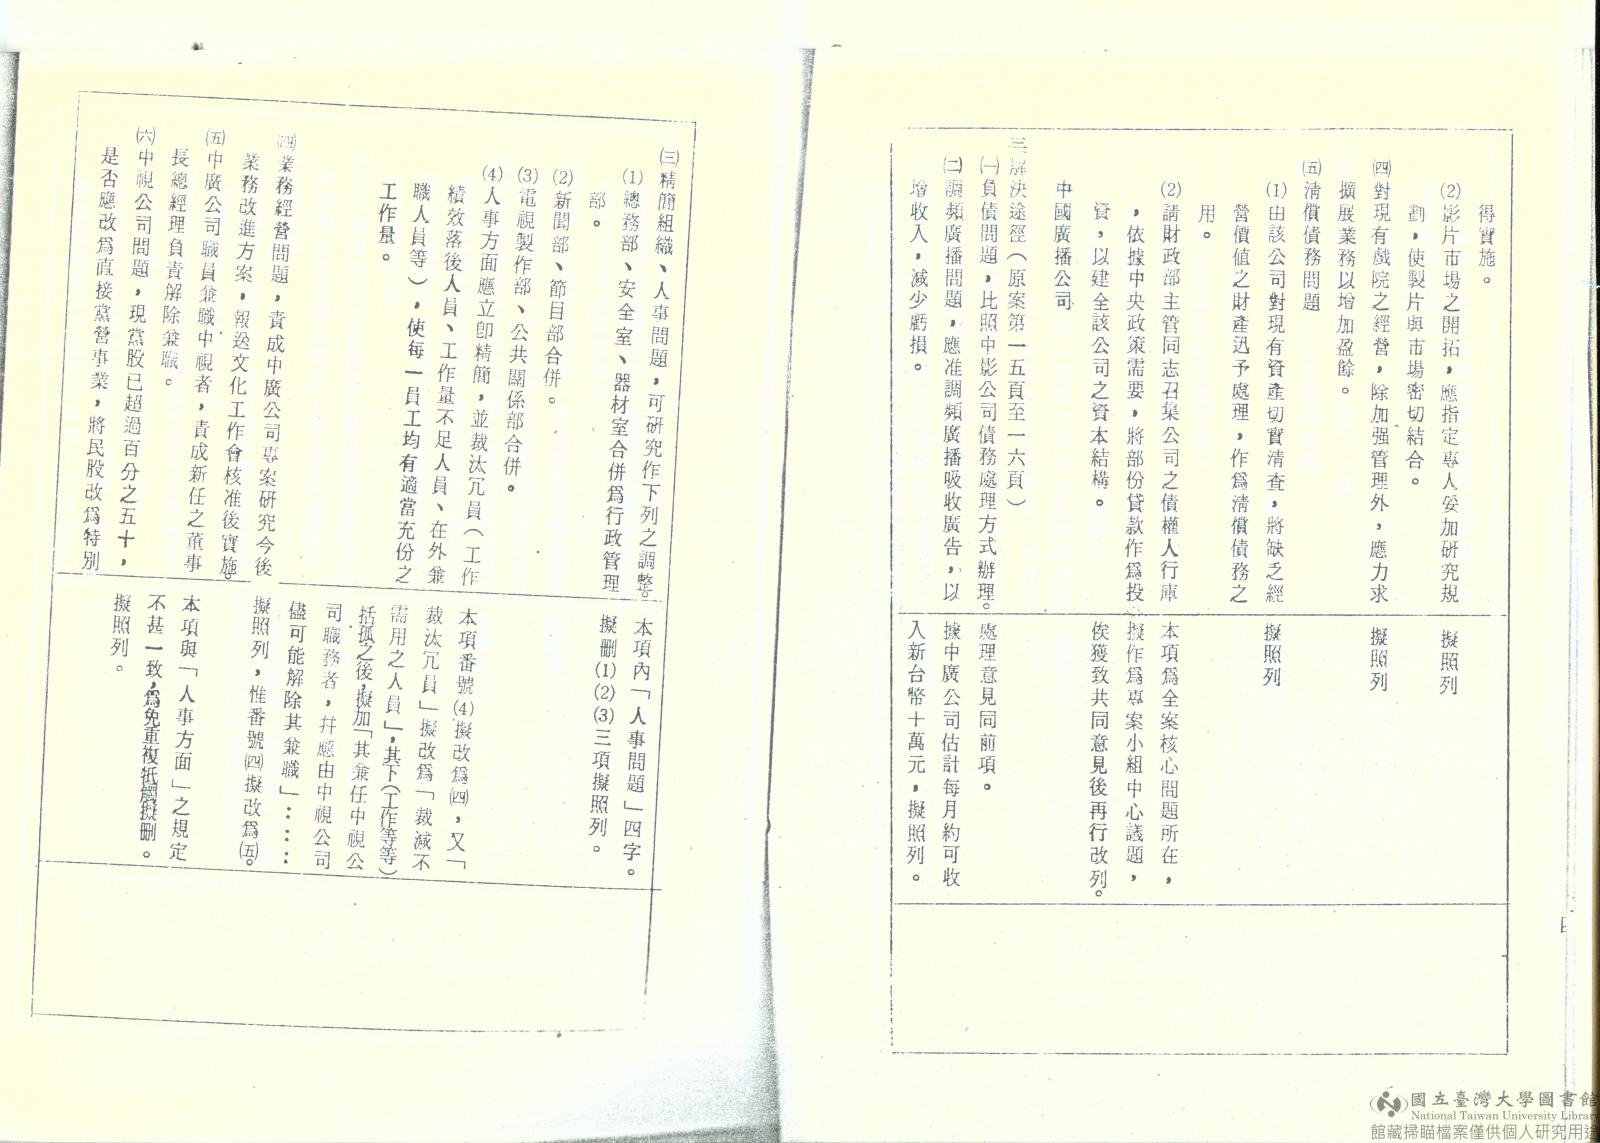 得實施。
⑵影片市場之開拓，應指定專人妥加研究規
劃，使製片與市場密切結合。
㈣對現有戲院之經營，除加强管理外，應力求
擴展業務以增加盈餘。
㈤淸償債務問題
⑴由該公司對現有資產切實淸查，將缺乏經
營價値之財產迅予處理，作爲淸償債務之
用。
⑵請財政部主管同志召集公司之債權人行庫
，依據中央政策需要，將部份貸款作爲投
資，以建全該公司之資本結構。
中國廣播公司
三解決途徑（原案第一五頁至一六頁）
㈠負債問題，比照中影公司債務處理方式辦理。
㈡調頻廣播問題，應准調頻廣播吸收廣告，以
增收入，減少虧損。
擬照列
擬照列
擬照列
本項爲全案核心問題所在，
擬作爲專案小組中心議題，
俟獲致共同意見後再行改列。
處理意見同前項。
據中廣公司估計每月約可收
入新台幣十萬元，擬照列。
㈢精簡組織、人事問題，可研究作下列之調整。
⑴總務部、安全室、器材室合併爲行政管理
部。
⑵新聞部、節目部合併。
⑶電視製作部、公共關係部合併。
⑷人事方面應立卽精簡，並裁汰冗員（工作
績效落後人員、工作量不足人員、在外兼
職人員等），使每一員工均有適當充份之
工作量。
㈣業務經營問題，責成中廣公司專案研究今後
業務改進方案，報逸文化工作會核准後實施。
㈤中廣公司職員兼職中視者，責成新任之董事
長總經理負責解除兼職。
㈥中視公司問題，現黨股已超過百分之五十，
是否應改爲直接黨營事業，將民股改爲特別
本項內「人事問題」四字。
擬刪⑴⑵⑶三項擬照列。
本項番號⑷擬改爲㈣，又「
裁汰冗員」擬改爲「裁減不
需用之人員」，其下（工作等等）
括弧之後，擬加「其兼任中視公
司職務者，幷應由中視公司
儘可能解除其兼職」……
擬照列，惟番號㈣擬改爲㈤。
本項與「人事方面」之規定
不甚一致，爲免重複牴觸擬刪。
擬照列。
國立臺灣大學圖書館
National Taiwan University Library
館藏掃瞄檔案僅供個人研究用途